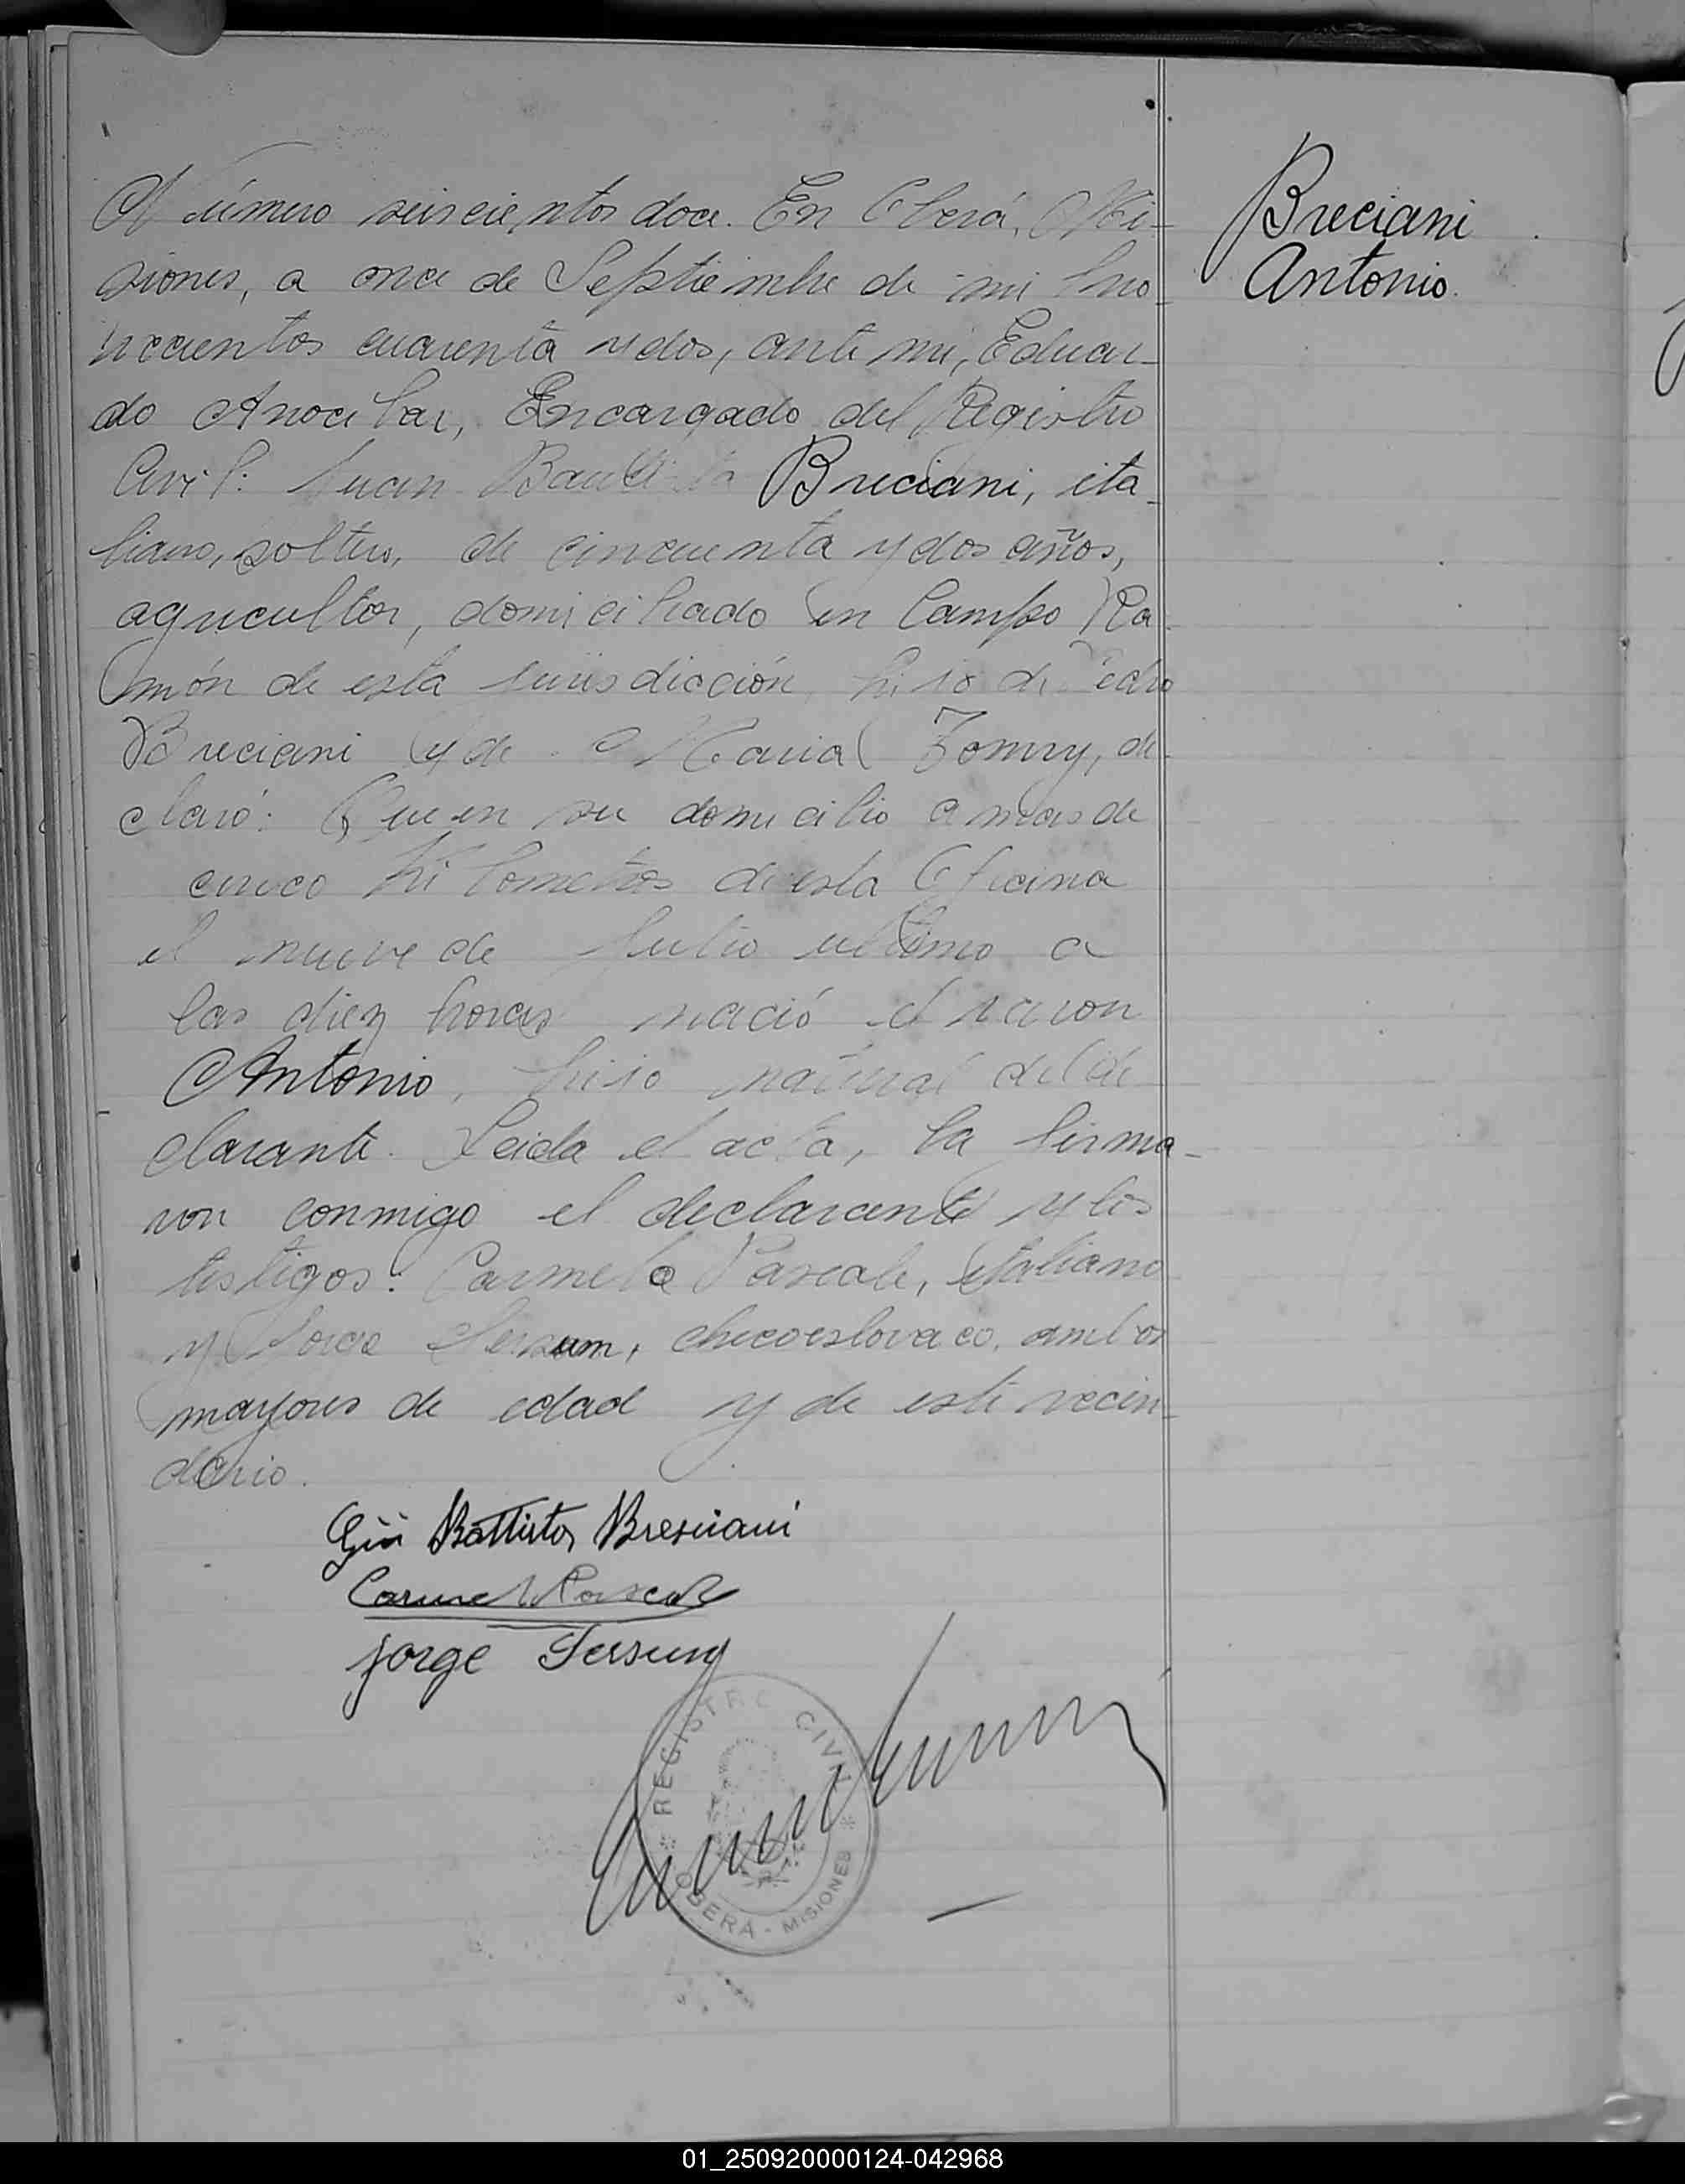 Número seiscientos doce. En Oberá, Mi-
siones, a once de Septiembre de mil no-
vecientos cuarenta y dos, ante mi, Eduar-
do Anocibar, Encargado del Registro
Civil: Juan Bautista Breciani, ita-
liano, soltero, de cincuenta y dos años,
agricultor, domiciliado en Campo Ra-
món de esta jurisdicción, hijo de Pedro
Breciani y de Maria de-
claró: Que en su domicilio a mas de
cinco kilometros de esta Oficina
el nueve de Julio ultimo a
las diez horas nació el varon
Antonio, hijo natural del de
clarante. Leida el acta, la firma-
ron conmigo el declarante y los
testigos: Carmelo Pascale, italiano
y Jorge checoeslovaco, ambos
mayores de edad y de este vecin-
dario.
Battista Bresciani
Jorge
REGISTRO CIVIL
OBERA - MISIONES
Breciani
Antonio.
01_250920000124-042968